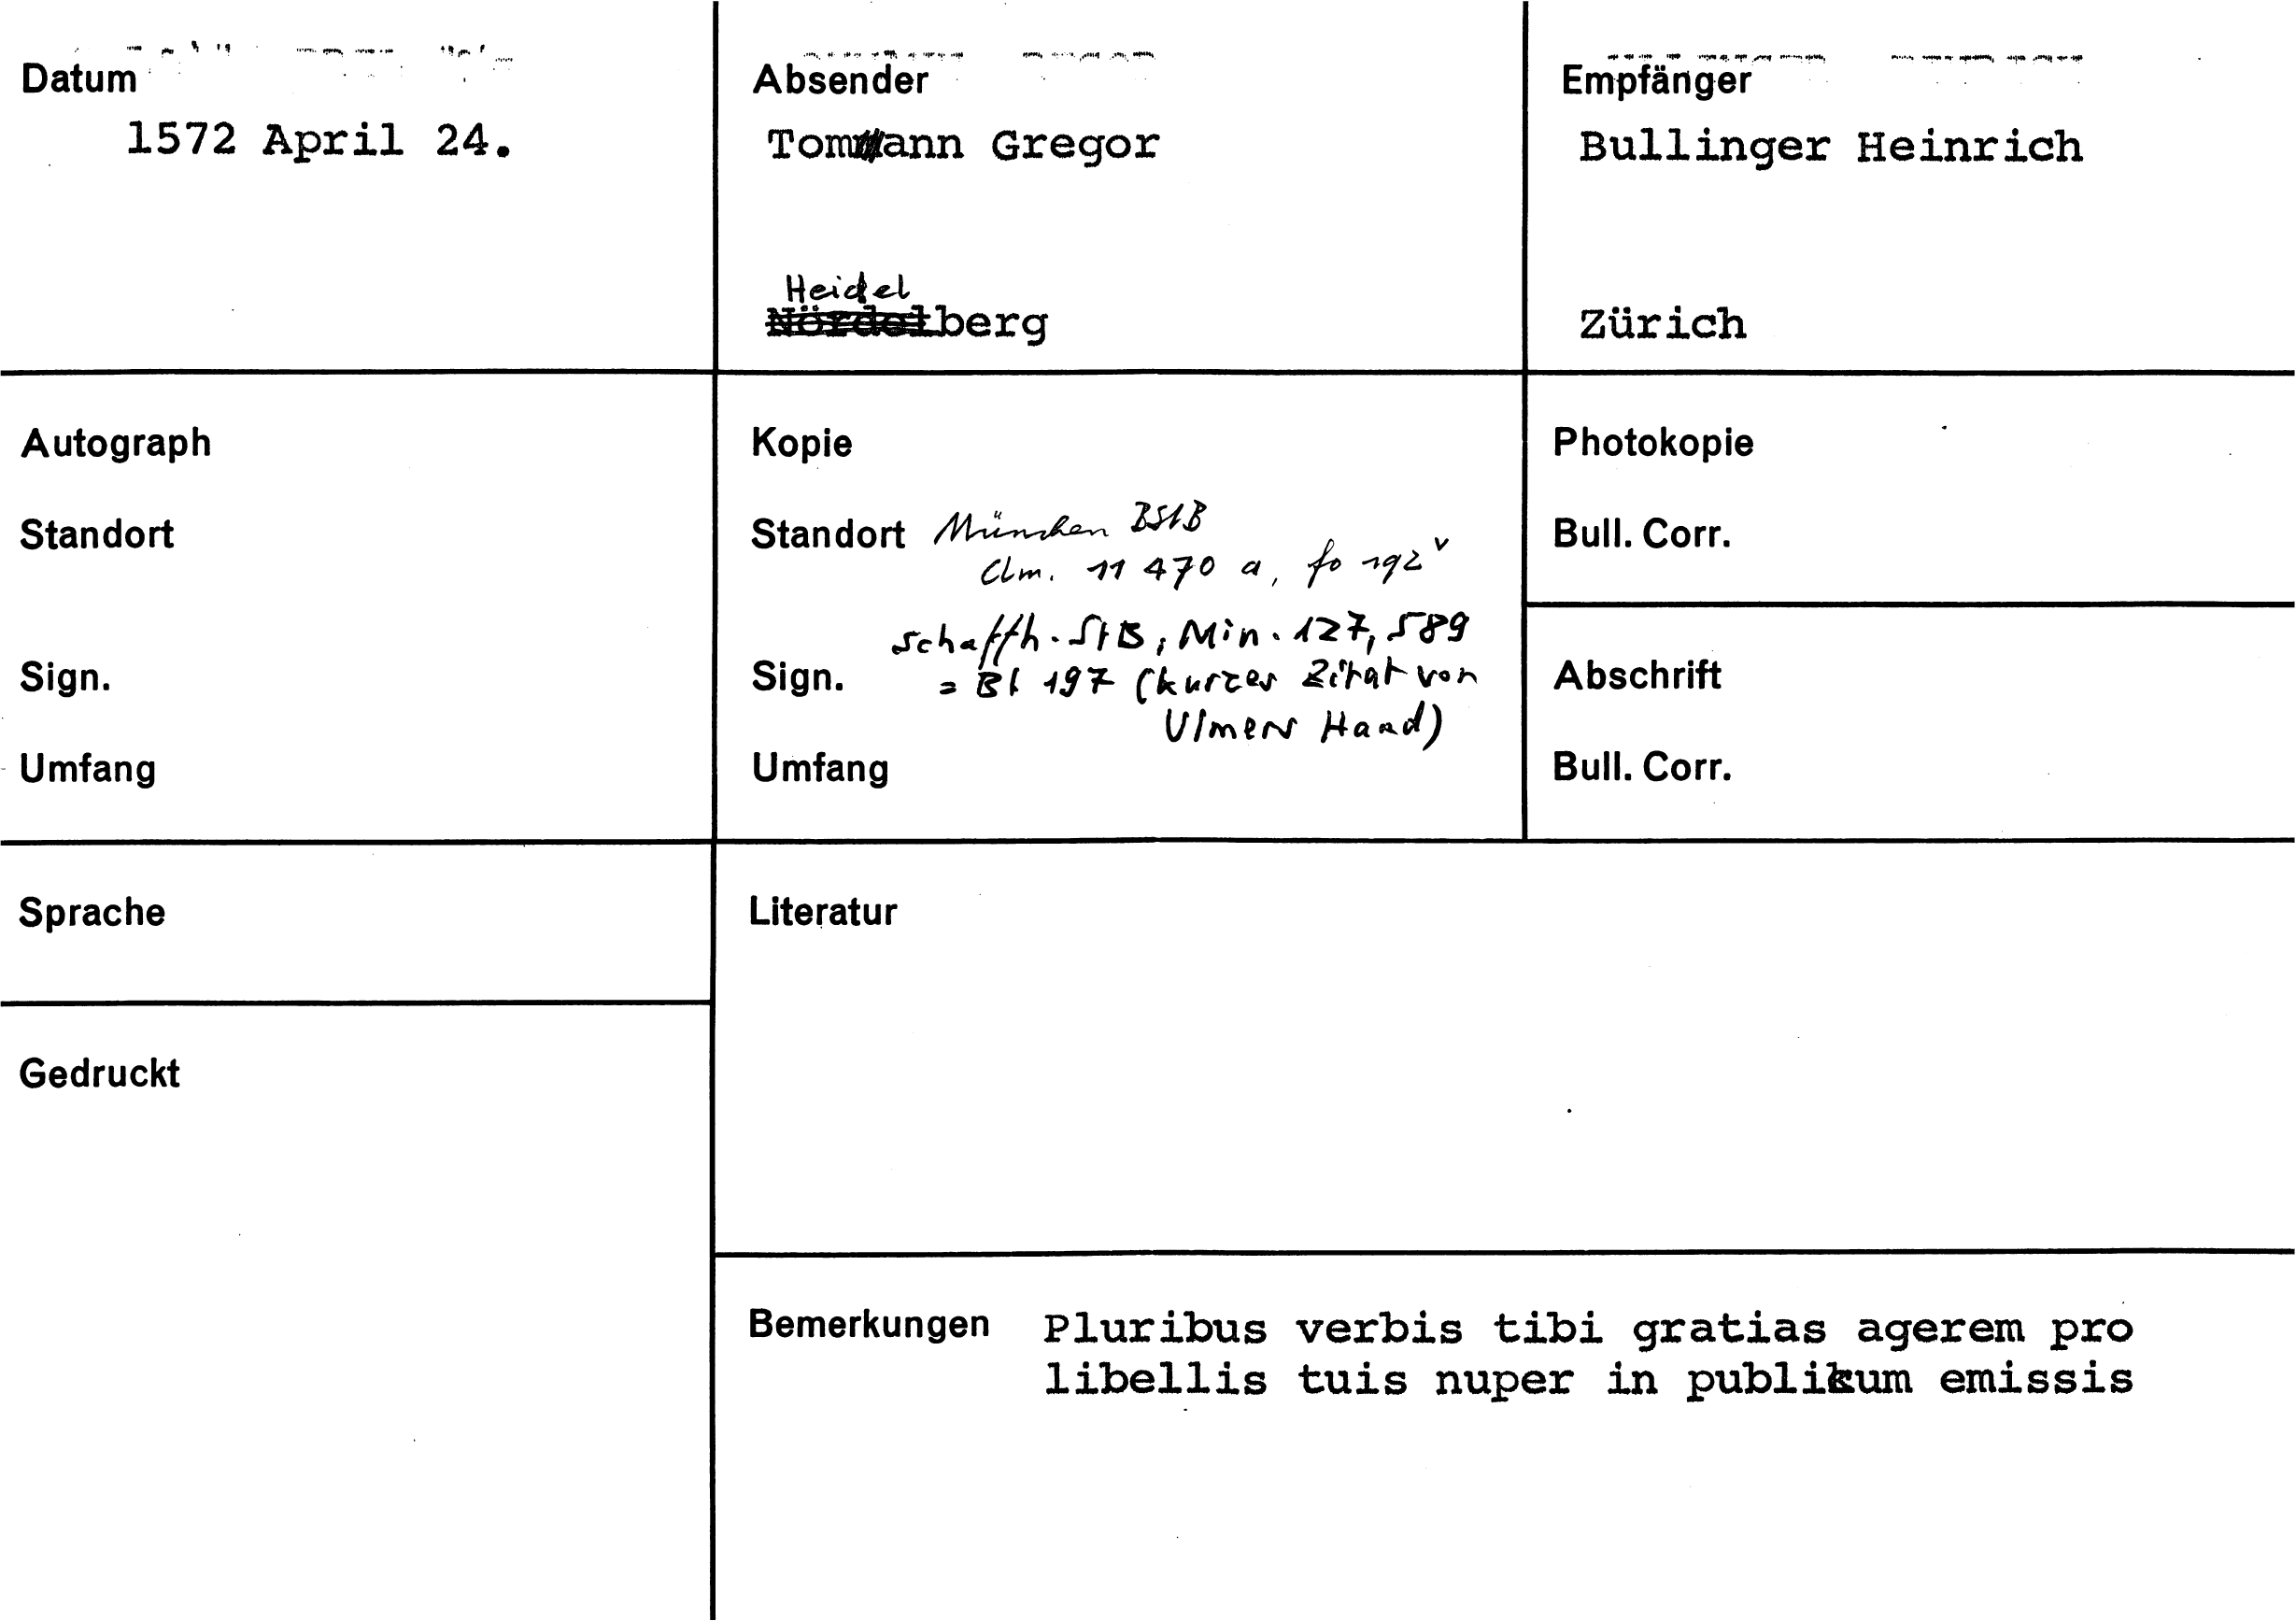 Datum
1572 April 24.
Absender
Tommann Gregor
Heidel
Nördelberg
Empfänger
Bullinger Heinrich
Zürich
Autograph
Standort
Sign.
Umfang
Kopie
Standort München BStB
Clm. 11 470 a, fo 192v
Schaffh. StB, Min. 127, 589
Sign. = Bl 197 (kurzes Zitat von
Ulmers Hand)
Umfang
Photokopie
Bull. Corr.
Abschrift
Bull. Corr.
Sprache
Gedruckt
Literatur
Bemerkungen Pluribus verbis tibi gratias agerem pro
libellis tuis nuper in publikum emissis